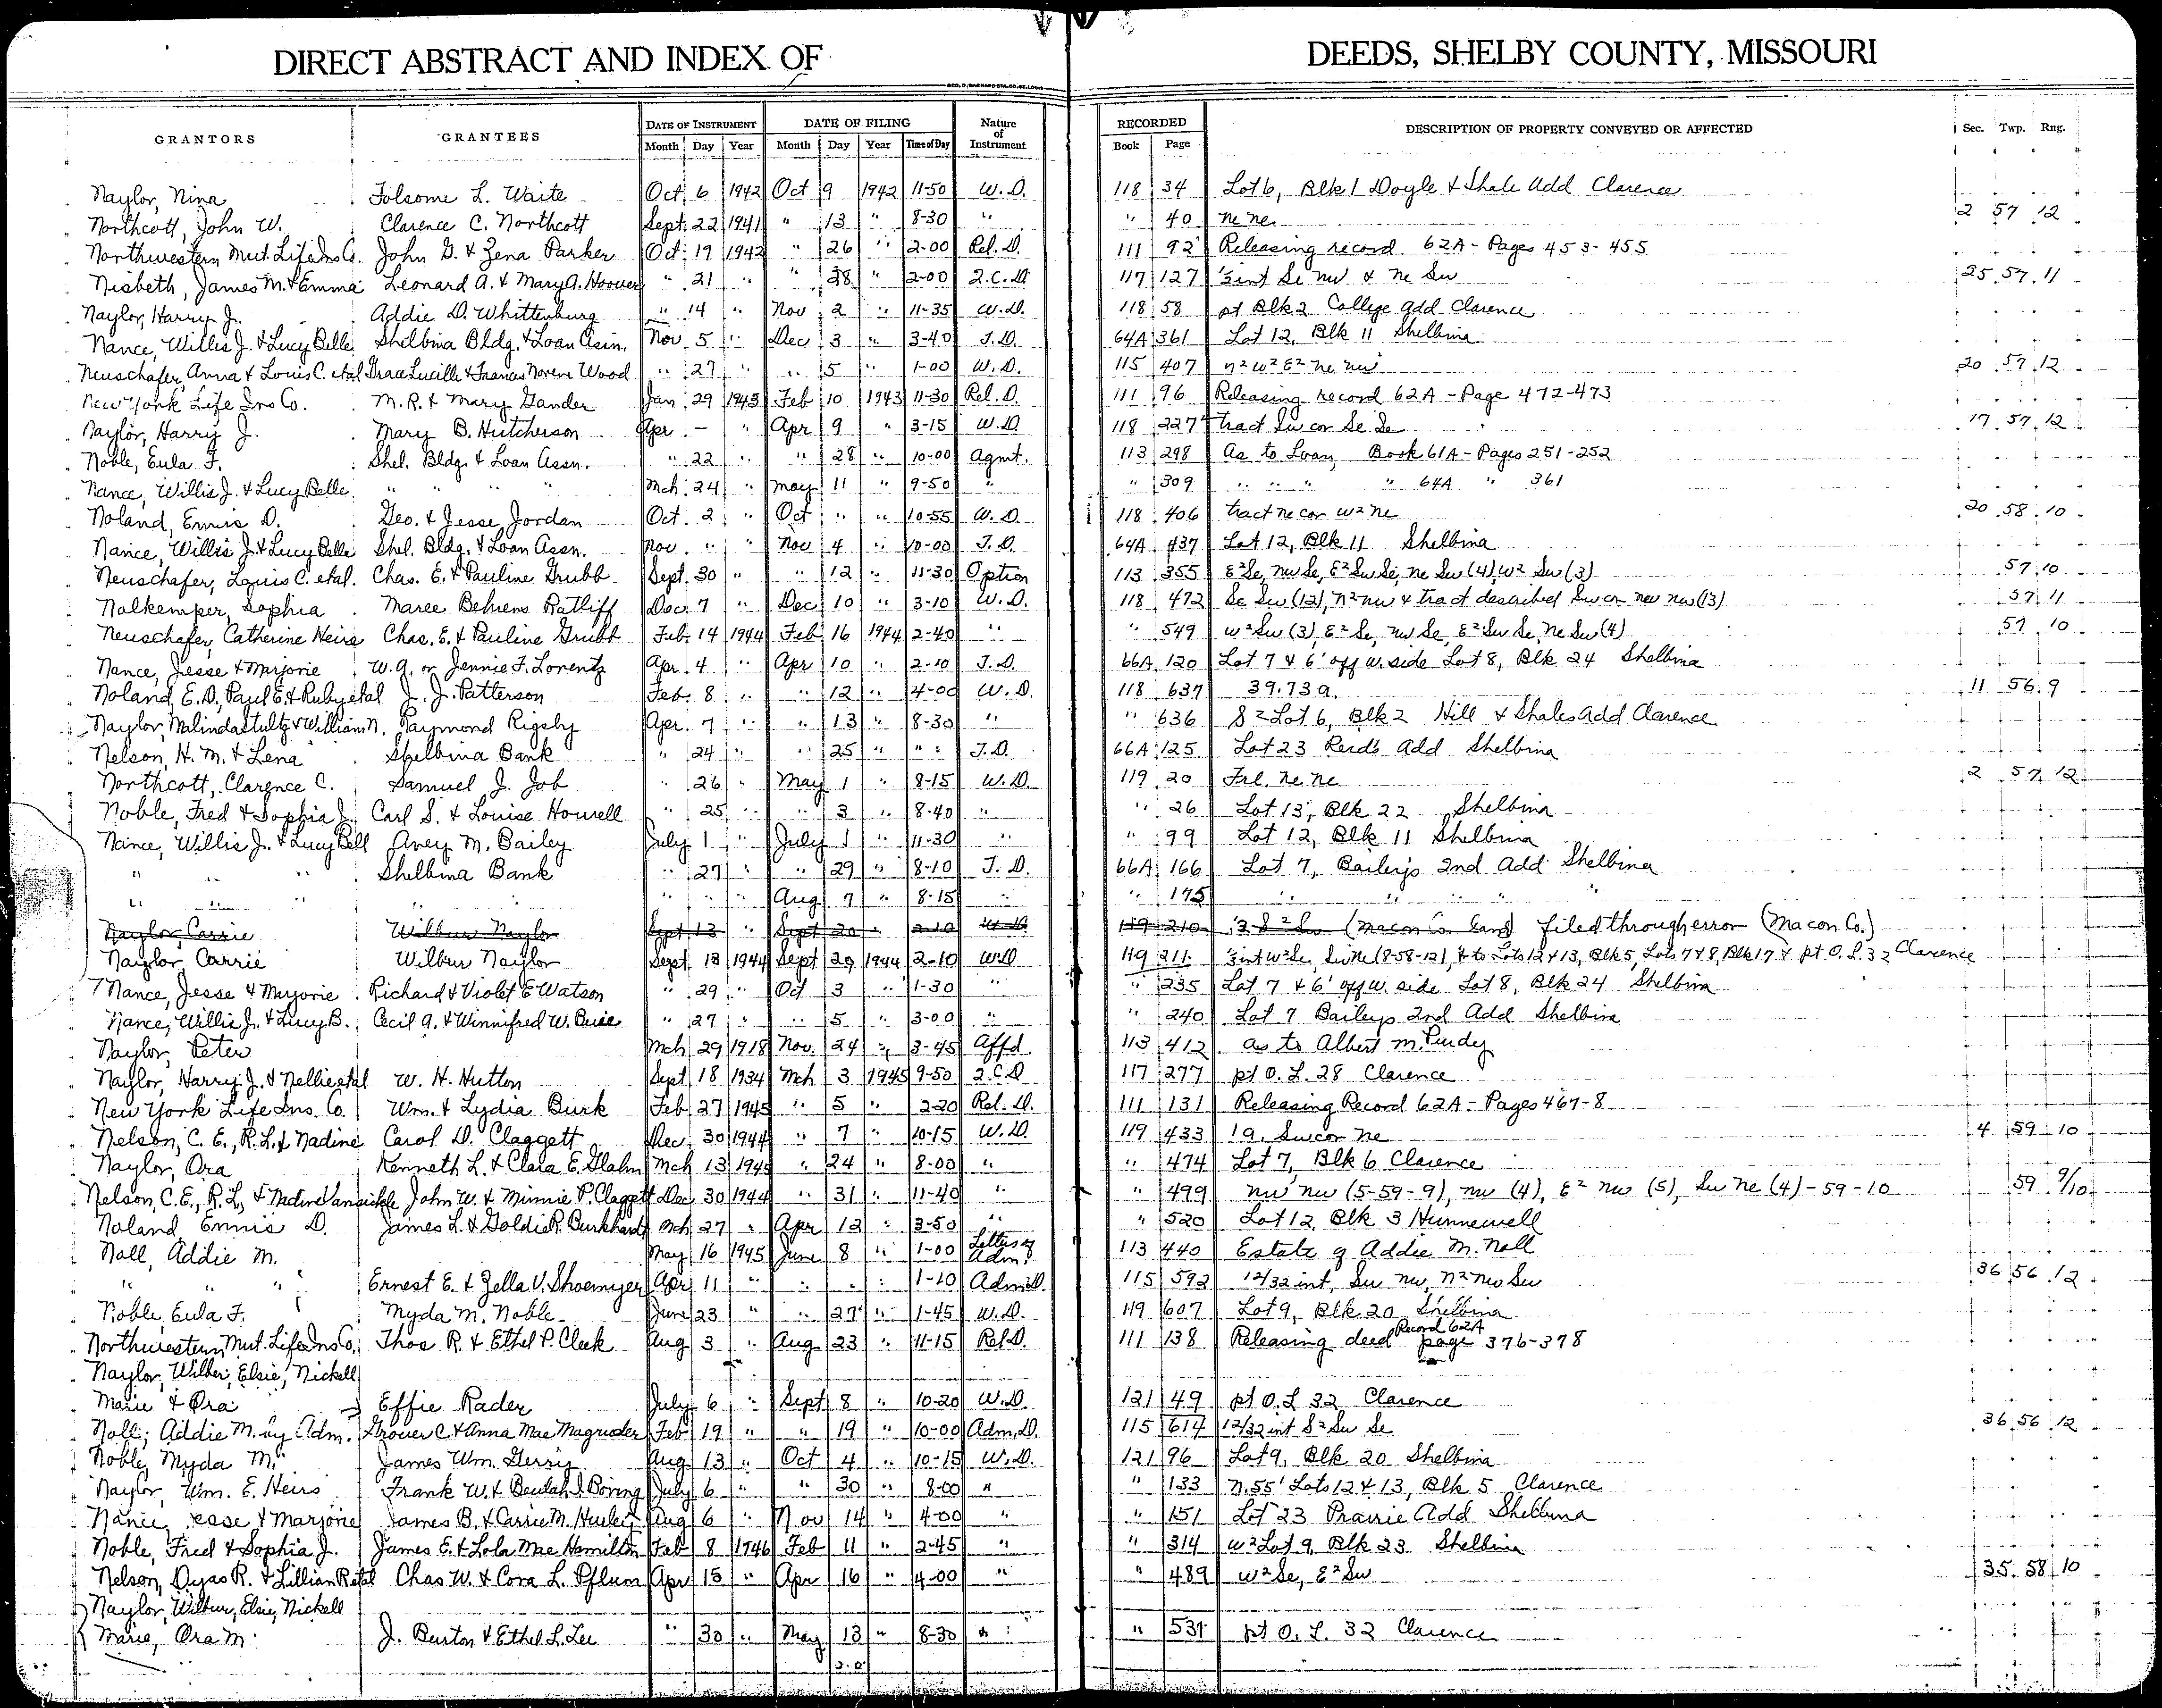 DIRECT ABSTRACT AND INDEX OF DEEDS, SHELBY COUNTY, MISSOURI
GEO. D. BARNARD STA. CO. ST. LOUIS
GRANTORS GRANTEES DATE OF INSTRUMENT DATE OF FILING Nature of Instrument RECORDED DESCRIPTION OF PROPERTY CONVEYED OR AFFECTED Sec. Twp. Rng.
Month Day Year Month Day Year Time of Day Book Page
Naylor, Nina Folsome L. Waite Oct 6 1942 Oct 9 1942 11-50 W.D. 118 34 Lot 6, Blk 1 Doyle & Shale Add Clarence
Northcott, John W. Clarence C. Northcott Sept 22 1941 " 13 " 8-30 " " 40 ne ne 2 57 12
Northwestern Mut. Life Ins Co. John G. & Zena Parker Oct 19 1942 " 26 " 2-00 Rel. D. 111 92 Releasing record 62A - Pages 453-455
Nisbeth, James M. & Emma Leonard A. & Mary A. Hoover " 21 " " 28 " 2-00 Q.C.D. 117 127 int Se nw & ne Sw 25 57 11
Naylor, Harry J. Addie D. Whittenburg " 14 " Nov 2 " 11-35 W.D. 118 58 pt Blk 2 College Add Clarence
Nance, Willis J. & Lucy Belle Shelbina Bldg. & Loan Assn. Nov 5 " Dec 3 " 3-40 T.D. 64A 361 Lot 12, Blk 11 Shelbina
Neuschafer, Anna & Louis C. etal Grace Lucille & Frances Norene Wood " 27 " " 5 " 1-00 W.D. 115 407 n² w² E² ne nw 20 57 12
New York Life Ins Co. M. R. & Mary Gander Jan 29 1943 Feb 10 1943 11-30 Rel. D. 111 96 Releasing record 62A - Page 472-473
Naylor, Harry J. Mary B. Hutcherson Apr - " Apr 9 " 3-15 W.D 118 227 tract Sw cor Se Se 17 57 12
Noble, Eula F. Shel. Bldg. & Loan Assn. " 22 " " 28 " 10-00 Agmt. 113 298 As to Loan Book 61A - Pages 251-252
Nance, Willis J. & Lucy Belle " " " Mch 24 " May 11 " 9-50 " " 309 " " " " 64A " 361
Noland, Ennis D. Geo. & Jesse Jordan Oct 2 " Oct " " 10-55 W.D. 118 406 tract ne cor w² ne 20 58 10
Nance, Willis J. & Lucy Belle Shel. Bldg. & Loan Assn. Nov. " " Nov 4 " 10-00 T.D. 64A 437 Lot 12, Blk 11 Shelbina
Neuschafer, Louis C. etal. Chas. E. & Pauline Grubb Sept 30 " " 12 " 11-30 Option 113 355 E² Se, nw Se, E² Sw Se, ne Sw (4) w² Sw (3) 57 10
Nolkemper, Sophia Maree Behrens Ratliff Dec 7 " Dec 10 " 3-10 W.D. 118 472 Se Sw (12), n² nw & tract described Sw cor new nw (13) 57 11
Neuschafer, Catherine Heirs Chas. E. & Pauline Grubb Feb 14 1944 Feb 16 1944 2-40 " " 549 w² Sw (3), E² Se, nw Se, E² Sw Se, ne Sw (4) 57 10
Nance, Jesse & Marjorie W. A. or Jennie F. Lorentz Apr 4 " Apr 10 " 2-10 T.D. 66A 120 Lot 7 & 6' off w. side Lot 8, Blk 24 Shelbina
Noland, E.D., Paul E. & Ruby etal J. J. Patterson Feb. 8 " " 12 " 4-00 W.D. 118 637 39.73 a. 11 56 9
Naylor, Malinda Stultz & William N. Raymond Rigsby Apr. 7 " " 13 " 8-30 " " 636 S² Lot 6, Blk 2 Hill & Shales Add Clarence
Nelson, H. M. & Lena Shelbina Bank " 24 " " 25 " " " T.D. 66A 125 Lot 23 Reid's Add Shelbina
Northcott, Clarence C. Samuel J. Job " 26 " May 1 " 8-15 W.D. 119 20 Frl. ne ne 2 57 12
Noble, Fred & Sophia J. Carl S. & Louise Howell " 25 " " 3 " 8-40 " " 26 Lot 13, Blk 22 Shelbina
Nance, Willis J. & Lucy Bell Avey M. Bailey July 1 " July 1 " 11-30 " " 99 Lot 12, Blk 11 Shelbina
" " " Shelbina Bank " 27 " " 29 " 8-10 T.D. 66A 166 Lot 7, Bailey's 2nd Add Shelbina
" " " " " " Aug 7 " 8-15 " " 175 " " " " "
Naylor, Carrie Wilbur Naylor Sept 13 " Sept 20 " 2-10 W.D 119 210 (Macon Co land) filed through error (Macon Co.)
Naylor, Carrie Wilbur Naylor Sept 13 1944 Sept 29 1944 2-10 W.D 119 211 int w² Se, Sw ne (8-58-12), & to Lots 12 & 13, Blk 5, Lots 7 & 8, Blk 17 & pt O.L. 32 Clarence
Nance, Jesse & Marjorie Richard & Violet E Watson " 29 " Oct 3 " 1-30 " " 235 Lot 7 & 6' off w. side Lot 8, Blk 24 Shelbina
Nance, Willis J. & Lucy B. Cecil A. & Winnifred W. Buie " 27 " " 5 " 3-00 " " 240 Lot 7 Baileys 2nd Add Shelbina
Naylor, Peter Mch 29 1918 Nov. 24 " 3-45 Affd. 113 412 as to Albert M. Purdy
Naylor, Harry J. & Nellie etal W. H. Hutton Sept 18 1934 Mch 3 1945 9-50 Q.C.D 117 277 pt O. L. 28 Clarence
New York Life Ins. Co. Wm. & Lydia Burk Feb 27 1945 " 5 " 2-20 Rel. D. 111 131 Releasing Record 62A - Pages 467-8
Nelson, C. E., R. L. & Nadine Carol D. Claggett Dec. 30 1944 " 7 " 10-15 W.D. 119 433 1a. Sw cor ne 4 59 10
Naylor, Ora Kenneth L. & Clara E. Glahn Mch 13 1945 " 24 " 8-00 " " 474 Lot 7, Blk 6 Clarence
Nelson, C.E., R.L., & Nadine Vansickle John W. & Minnie P. Claggett Dec 30 1944 " 31 " 11-40 " " 499 nw nw (5-59-9), nw (4), E² nw (5), Sw ne (4)-59-10 59 9/10
Noland Ennis D. James L. & Goldie R. Burkhardt Mch 27 " Apr 12 " 3-50 " " 520 Lot 12, Blk 3 Hunnewell
Noll, Addie M. May 16 1945 June 8 " 1-00 Letters of Adm. 113 440 Estate of Addie M. Noll
" " " Ernest E. & Zella V. Shoemyer Apr 11 " " " " 1-10 Adm. D. 115 592 12/32 int, Sw nw, n² nw Sw 36 56 12
Noble, Eula F. Myda M. Noble June 23 " " 27 " 1-45 W.D. 119 607 Lot 9, Blk 20 Shelbina
Northwestern Mut. Life Ins Co. Thos R. & Ethel P. Cleek Aug 3 " Aug 23 " 11-15 Rel D. 111 138 Releasing deed Record 62A page 376-378
Naylor, Wilber, Elsie, Nickell
Marie & Ora Effie Rader July 6 " Sept 8 " 10-20 W.D. 121 49 pt O.L 32 Clarence
Noll, Addie M. by Adm. Grover C. & Anna Mae Magruder Feb 19 " " 19 " 10-00 Adm. D. 115 614 12/32 int S² Sw Se 36 56 12
Noble, Myda M. James Wm. Gerry Aug 13 " Oct 4 " 10-15 W.D. 121 96 Lot 9, Blk 20 Shelbina
Naylor, Wm. E. Heirs Frank W. & Beulah I. Boring July 6 " " 30 " 8-00 " " 133 N. 55' Lots 12 & 13, Blk 5 Clarence
Nance, Jesse & Marjorie James B. & Carrie M. Hurley Aug 6 " Nov 14 " 4-00 " " 151 Lot 23 Prairie Add Shelbina
Noble, Fred & Sophia J. James E. & Lola Mae Hamilton Feb 8 1946 Feb 11 " 2-45 " " 314 w² Lot 9, Blk 23 Shelbina
Nelson, Dyas R. & Lillian R etal Chas W. & Cora L. Pflum Apr 15 " Apr 16 " 4-00 " " 489 w² Se, E² Sw 35 58 10
Naylor, Wilbur, Elsie, Nickell
Marie, Ora M. J. Burton & Ethel L. Lee " 30 " May 13 " 8-30 " " 531 pt O. L. 32 Clarence